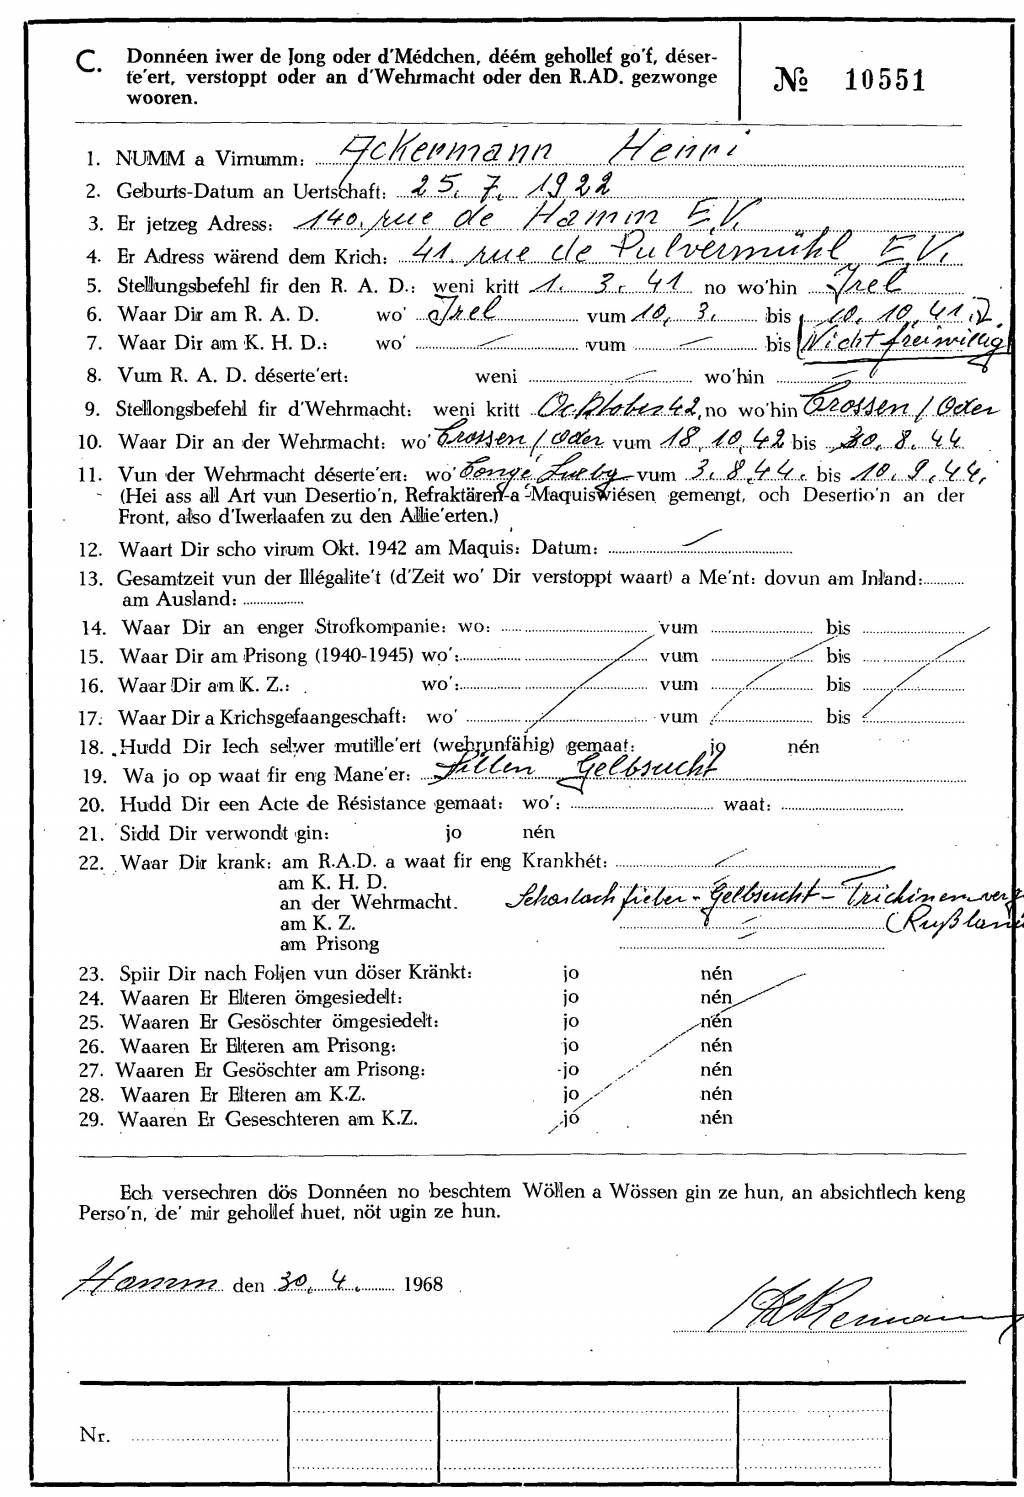 C. Donnéen iwer de Jong oder d'Médchen, déém gehollef go'f, déser-
te'ert, verstoppt oder an d'Wehrmacht oder den R.AD. gezwonge
wooren.
№ 10551
1. NUMM a Virnumm: Ackermann Henri
2. Geburts-Datum an Uertschaft: 25. 7. 1922
3. Er jetzeg Adress: 140, rue de Hamm E.V.
4. Er Adress wärend dem Krich: 41. rue de Pulvermühl E.V.
5. Stellungsbefehl fir den R. A. D.: weni kritt 1. 3. 41 no wo'hin Irel
6. Waar Dir am R. A. D. wo' Irel vum 10. 3. bis 10. 10. 41.
7. Waar Dir am K. H. D.: wo' — vum — bis Nicht freiwillig
8. Vum R. A. D. déserte'ert: weni — wo'hin —
9. Stellongsbefehl fir d'Wehrmacht: weni kritt Ocktober 42, no wo'hin Crossen / Oder
10. Waar Dir an der Wehrmacht: wo' Crossen / Oder vum 18. 10. 42 bis 30. 8. 44
11. Vun der Wehrmacht déserte'ert: wo' Congé vum 3. 8. 44. bis 10. 9. 44.
(Hei ass all Art vun Desertio'n, Refraktären-a Maquiswiésen gemengt, och Desertio'n an der
Front, also d'Iwerlaafen zu den Allie'erten.)
12. Waart Dir scho virum Okt. 1942 am Maquis: Datum: —
13. Gesamtzeit vun der Illégalite't (d'Zeit wo' Dir verstoppt waart) a Me'nt: dovun am Inland:
am Ausland:
14. Waar Dir an enger Strofkompanie: wo: vum bis
15. Waar Dir am Prisong (1940-1945) wo': vum bis
16. Waar Dir am K. Z.: wo': vum bis
17. Waar Dir a Krichsgefaangeschaft: wo' vum bis
18. Hudd Dir Iech selwer mutille'ert (wehrunfähig) gemaat: jo nén
19. Wa jo op waat fir eng Mane'er: Pillen Gelbsucht
20. Hudd Dir een Acte de Résistance gemaat: wo': waat:
21. Sidd Dir verwondt gin: jo nén
22. Waar Dir krank: am R.A.D. a waat fir eng Krankhét: —
am K. H. D. —
an der Wehrmacht. Scharlachfieber - Gelbsucht - Trichinenverg
am K. Z. — (Rußland
am Prisong —
23. Spiir Dir nach Foljen vun döser Kränkt: jo nén
24. Waaren Er Elteren ömgesiedelt: jo nén
25. Waaren Er Gesöschter ömgesiedelt: jo nén
26. Waaren Er Elteren am Prisong: jo nén
27. Waaren Er Gesöschter am Prisong: jo nén
28. Waaren Er Elteren am K.Z. jo nén
29. Waaren Er Geseschteren am K.Z. jo nén
Ech versechren dös Donnéen no beschtem Wöllen a Wössen gin ze hun, an absichtlech keng
Perso'n, de' mir gehollef huet, nöt ugin ze hun.
Hamm den 30. 4. 1968
HAckermann
Nr.